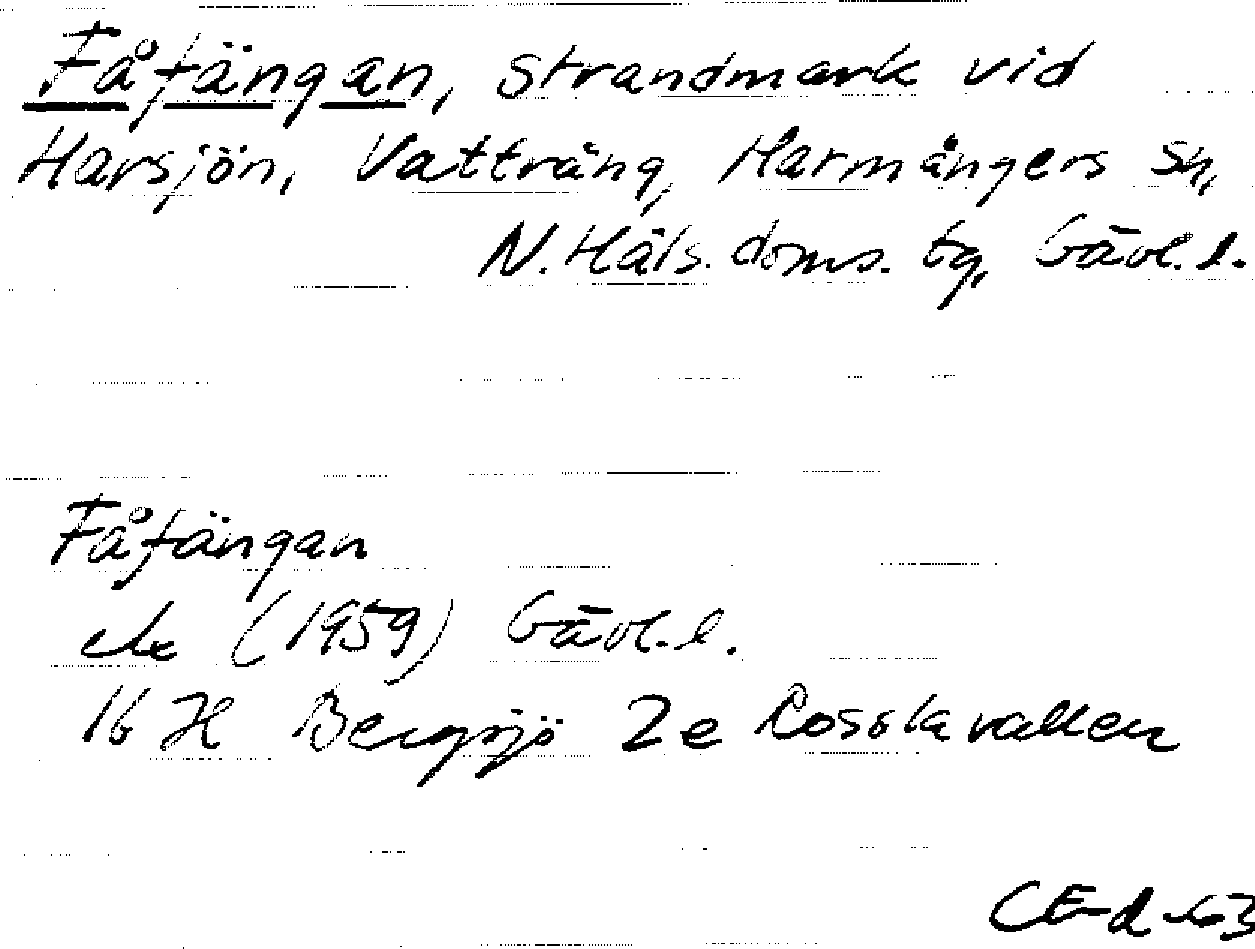 Fåfängan, strandmark vid
Harsjön, Vattrång, Harmångers sn,
N. Häls. doms. tg, Gävl. l.
Fåfängan
ek (1959) Gävl. l.
16 H Bergsjö 2e Rosslavallen
CE-d -63